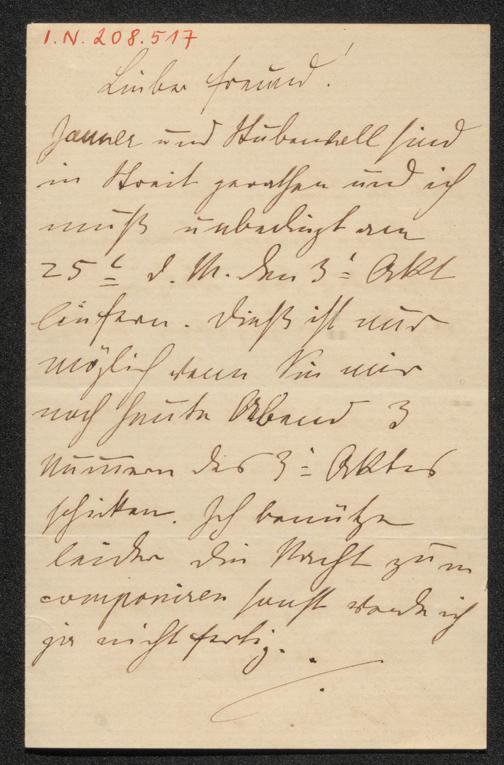 I.N. 208.517
Lieber Freund!
Jauner und Steubenrell sind
in Streit gerathen und ich
muß unbedingt am
25t d. M. den 3t Akt
liefern. Dieß ist nur
möglich wenn Sie mir
noch heute Abend 3
Nummern des 3t Aktes
schicken. Ich benütze
leider die Nacht zum
componiren sonst werde ich
ja nicht fertig.